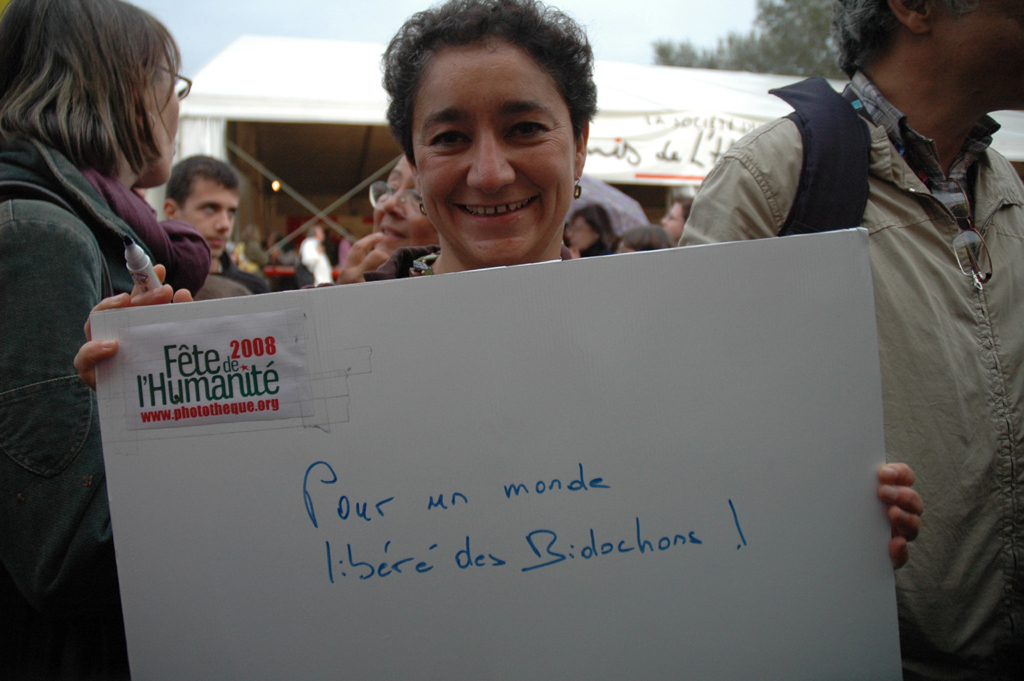 LA SOCIÉTÉ DE
de L'H
Fête de 2008
l'Humanité
www.phototheque.org
Pour un monde
libéré des Bidochons !